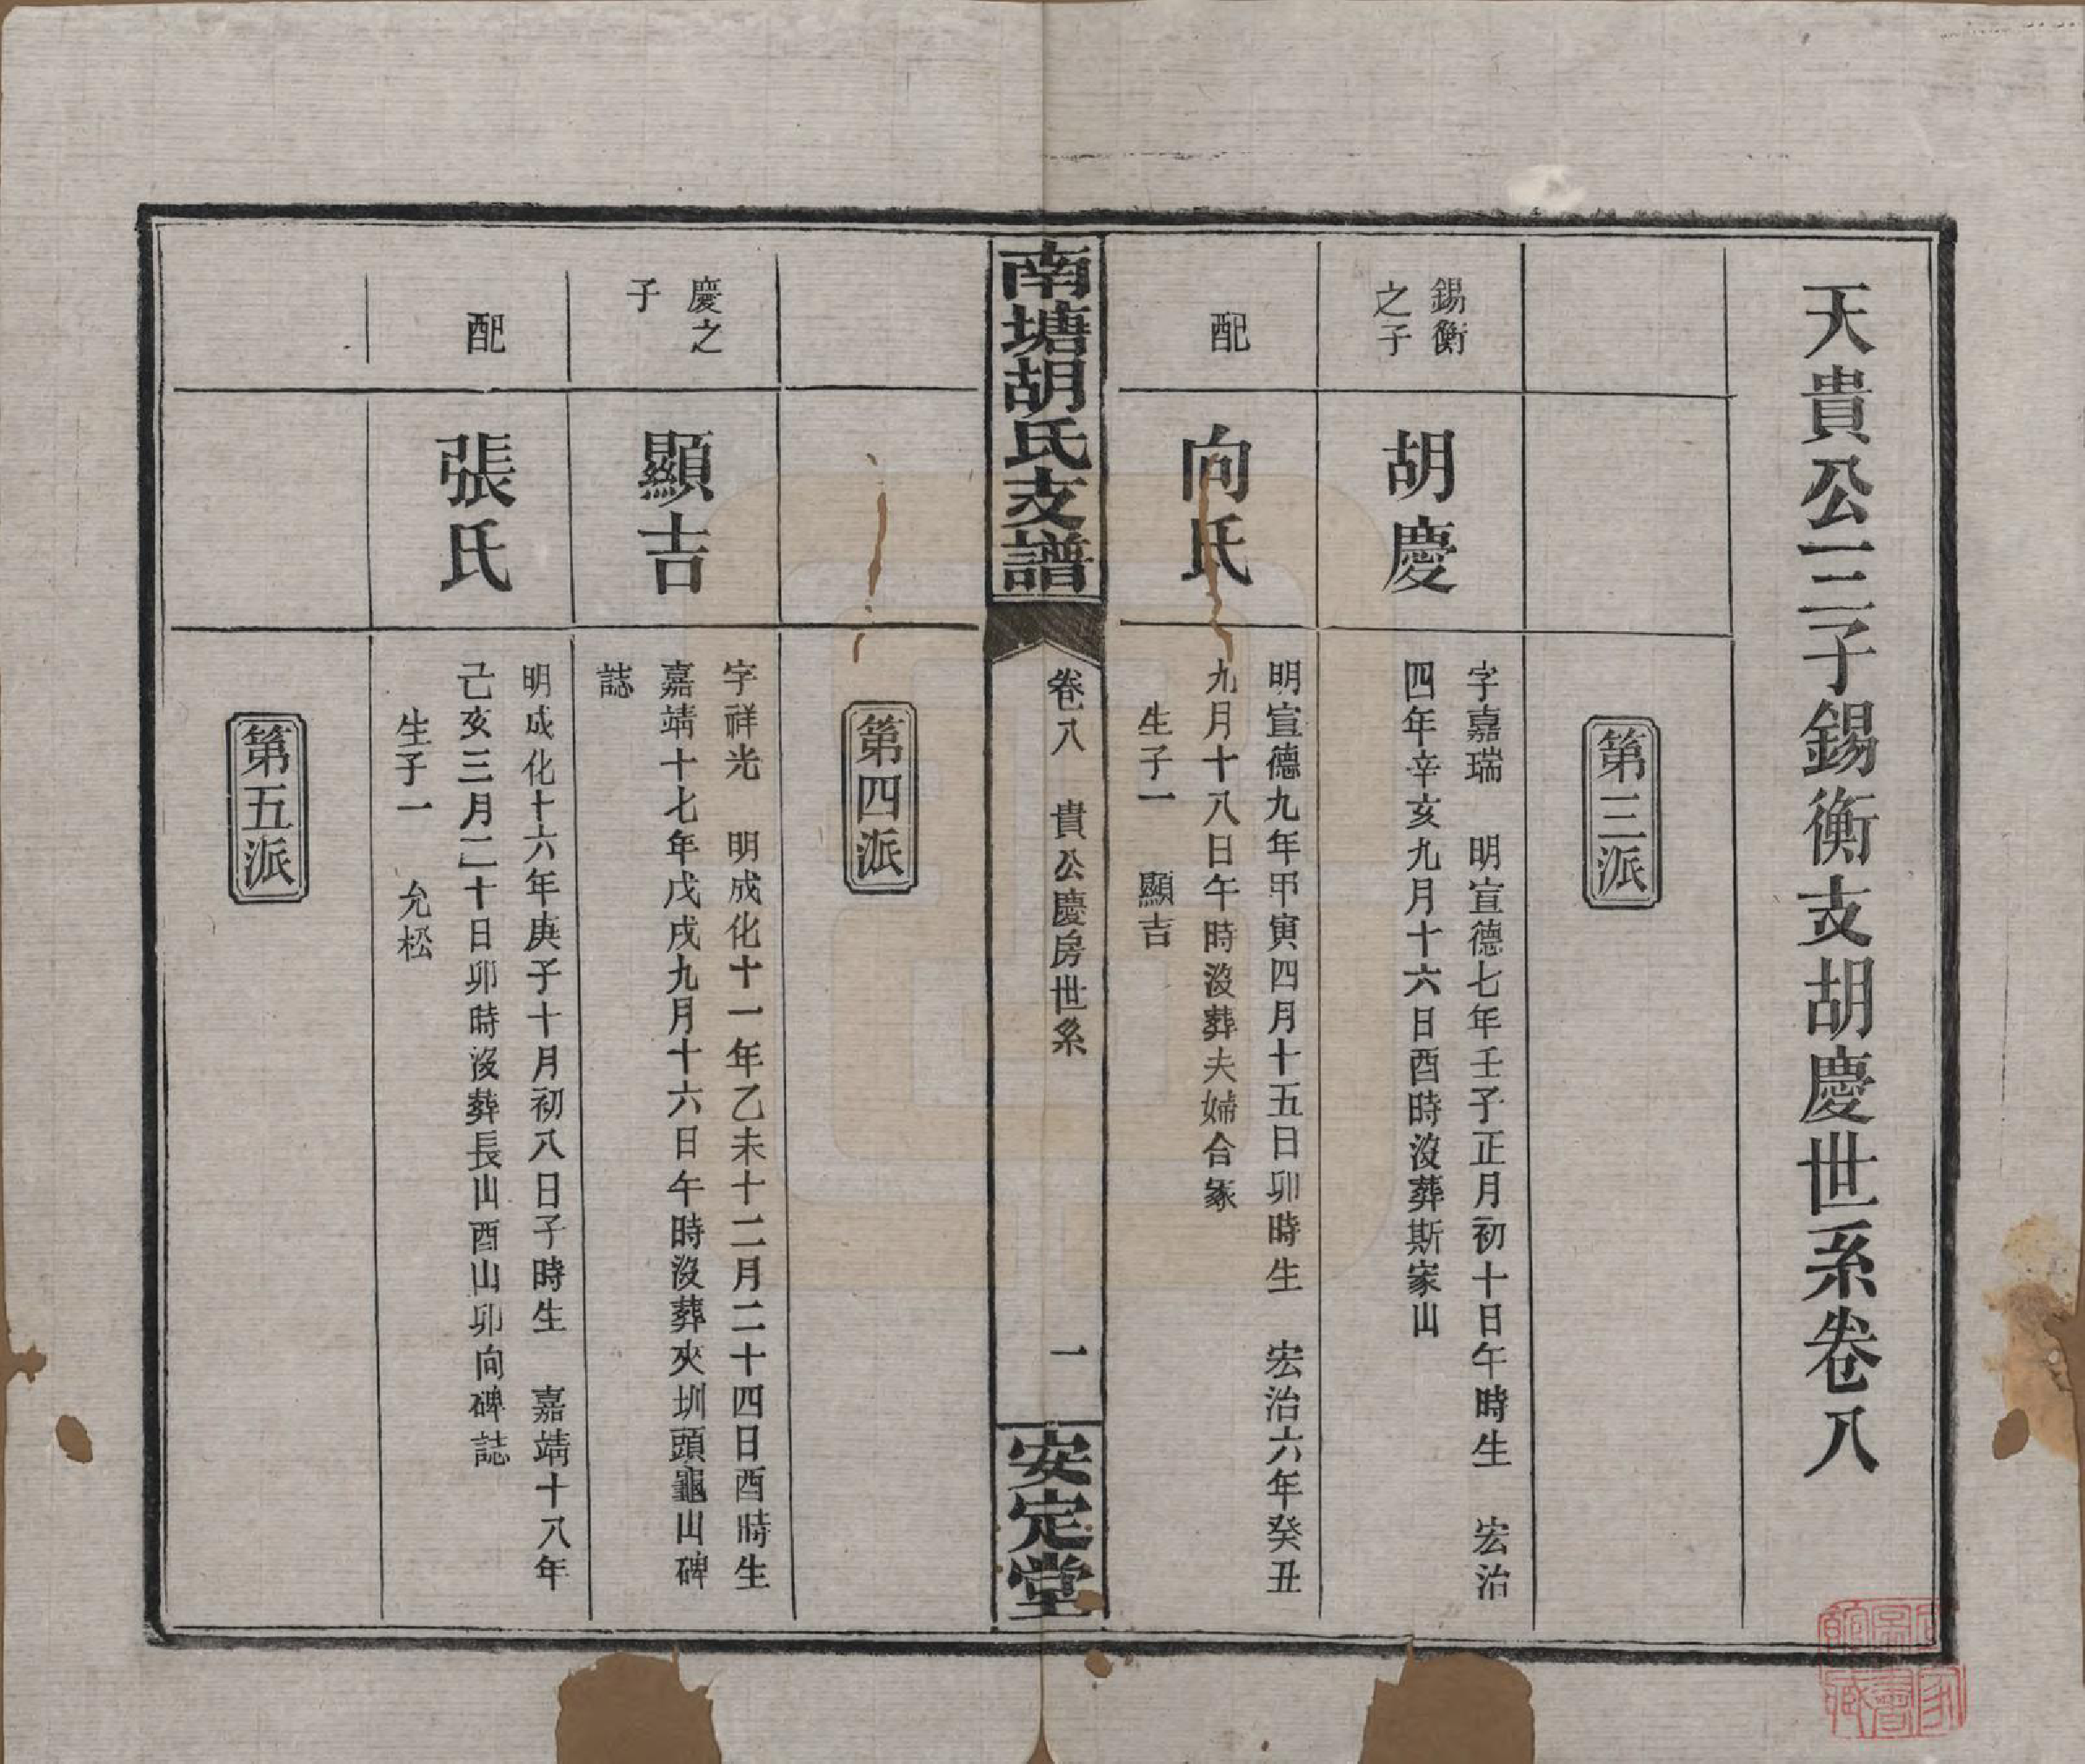 天貴公二子錫衡支胡慶世系卷八
第三派
錫衡
之子
胡慶
字嘉瑞　明宣德七年壬子正月初十日午時生　宏治
四年辛亥九月十六日酉時沒葬斯家山
配
向氏
明宣德九年甲寅四月十五日卯時生　宏治六年癸丑
九月十八日午時沒葬夫婦合冢
生子一　顯吉
南塘胡氏支譜
卷八　貴公慶房世系
一
安定堂
第四派
慶之
子
顯吉
字祥光　明成化十一年乙未十二月二十四日酉時生
嘉靖十七年戊戌九月十六日午時沒葬夾圳頭龜山碑
誌
配
張氏
明成化十六年庚子十月初八日子時生　嘉靖十八年
己亥三月二十日卯時沒葬長山酉山卯向碑誌
生子一　允松
第五派